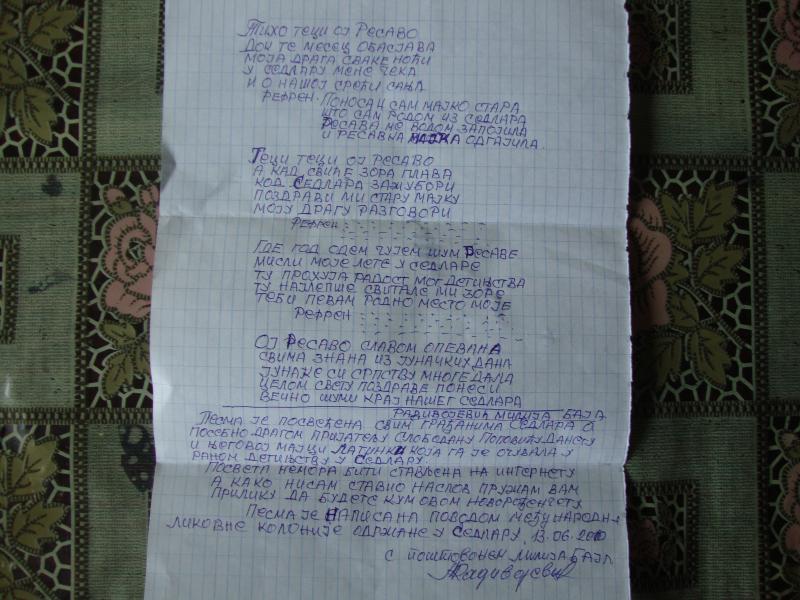 ТИХО ТЕЦИ ОЈ РЕСАВО
ДОК ТЕ МЕСЕЦ ОБАСЈАВА
МОЈА ДРАГА СВАКЕ НОЋИ
У СЕДЛАРУ МЕНЕ ЧЕКА
И О НАШОЈ СРЕЋИ САЊА
РЕФРЕН. ПОНОСАН САМ МАЈКО СТАРА
ШТО САМ РОДОМ ИЗ СЕДЛАРА
РЕСАВА МЕ ВОДОМ ЗАПОЈИЛА
И РЕСАВКА МАЈКА ОДГАЈИЛА.
ТЕЦИ ТЕЦИ ОЈ РЕСАВО
А КАД СВИЋЕ ЗОРА ПЛАВА
КОД СЕДЛАРА ЗАЖУБОРИ
ПОЗДРАВИ МИ СТАРУ МАЈКУ
МОЈУ ДРАГУ РАЗГОВОРИ
РЕФРЕН
ГДЕ ГОД ОДЕМ ЧУЈЕМ ШУМ РЕСАВЕ
МИСЛИ МОЈЕ ЛЕТЕ У СЕДЛАРЕ
ТУ ПРОХУЈА РАДОСТ МОГ ДЕТИЊСТВА
ТУ НАЈЛЕПШЕ СВИТАЛЕ МИ ЗОРЕ
ТЕБИ ПЕВАМ РОДНО МЕСТО МОЈЕ
РЕФРЕН
ОЈ РЕСАВО СЛАВОМ ОПЕВАНА
СВИМА ЗНАНА ИЗ ЈУНАЧКИХ ДАНА
ЈУНАКЕ СИ СРПСТВУ МНОГЕ ДАЛА
ЦЕЛОМ СВЕТУ ПОЗДРАВЕ ПОНЕСИ
ВЕЧНО ШУМИ КРАЈ НАШЕГ СЕДЛАРА
РАДИВОЈЕВИЋ МИЛИЈА БАЈА
ПЕСМА ЈЕ ПОСВЕЋЕНА СВИМ ГРАЂАНИМА СЕДЛАРА А
ПОСЕБНО ДРАГОМ ПРИЈАТЕЉУ СЛОБОДАНУ ПОПОВИЋУ
И ЊЕГОВОЈ МАЈЦИ ЛАТИНКИ КОЈА ГА ЈЕ ОЧУВАЛА У
РАНОМ ДЕТИЊСТВУ У СЕДЛАРУ.
ПОСВЕТА НЕМОРА БИТИ СТАВЉЕНА НА ИНТЕРНЕТУ
А КАКО НИСАМ СТАВИО НАСЛОВ ПРУЖАМ ВАМ
ПРИЛИКУ ДА БУДЕТЕ КУМ ОВОМ НОВОРОЂЕНЧЕТУ.
ПЕСМА ЈЕ НАПИСАНА ПОВОДОМ МЕЂУНАРОДНЕ
ЛИКОВНЕ КОЛОНИЈЕ ОДРЖАНЕ У СЕДЛАРУ, 13.06.2010
С ПОШТОВАЊЕМ МИЛИЈА БАЈА
Радивојевић